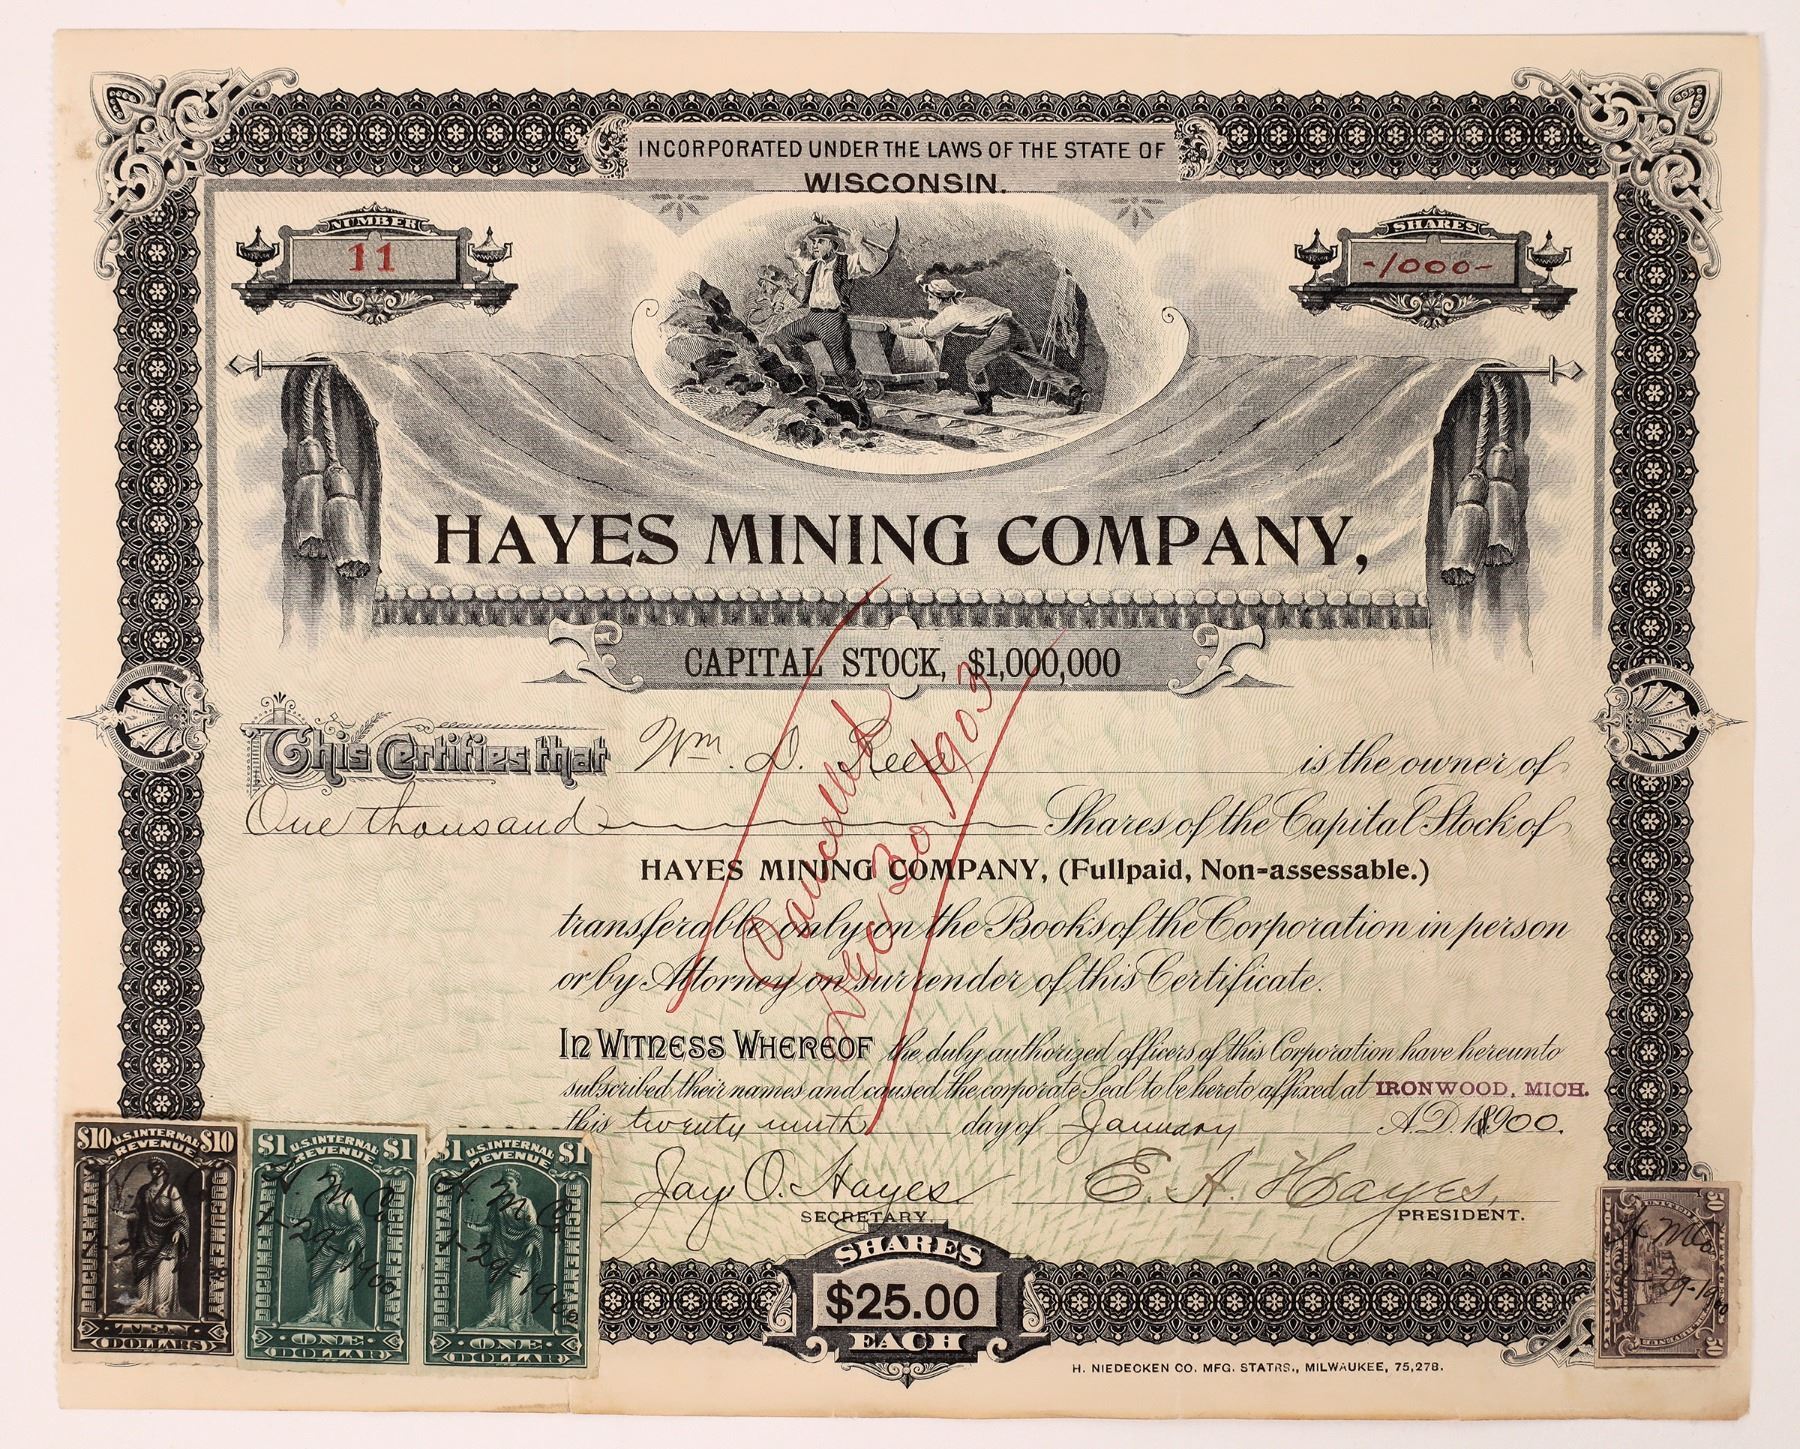 INCORPORATED UNDER THE LAWS OF THE STATE OF
WISCONSIN.
NUMBER
11
SHARES
-1000-
HAYES MINING COMPANY,
CAPITAL STOCK, $1,000,000
This Certifies that Wm. D. Reese is the owner of
One thousand Shares of the Capital Stock of
HAYES MINING COMPANY, (Fullpaid, Non-assessable.)
transferable only on the Books of the Corporation in person
or by Attorney on surrender of this Certificate.
Cancelled
Dec. 30-1903
IN WITNESS WHEREOF the duly authorized officers of this Corporation have hereunto
subscribed their names and caused the corporate Seal to be hereto affixed at IRONWOOD, MICH.
this twenty ninth day of January A.D. 1900.
Jay O. Hayes E. A. Hayes,
SECRETARY. PRESIDENT.
SHARES
$25.00
EACH
H. NIEDECKEN CO. MFG. STATRS., MILWAUKEE, 75,278.
$10 U.S. INTERNAL REVENUE $10
DOCUMENTARY DOCUMENTARY
TEN
DOLLARS
$1 U.S. INTERNAL REVENUE $1
DOCUMENTARY DOCUMENTARY
H. M. Co.
1-29-1900
ONE
DOLLAR
$1 U.S. INTERNAL REVENUE $1
DOCUMENTARY DOCUMENTARY
H. M. Co.
1-29-1900
ONE
DOLLAR
50 50
H M Co
1-29-1900
50